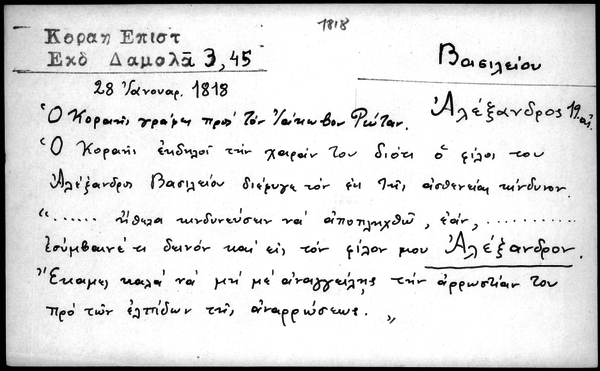 1818
Κοραη Επιστ
Εκδ Δαμολᾶ 3,45
Βασιλείου
28 Ἰανουαρ. 1818
Ἀλέξανδρος 19 αἰ.
Ὁ Κοραῆς γράφει πρὸς τὸν Ἰάκωβον Ρώταν.
Ὁ Κοραῆς ἐκδηλοῖ τὴν χαράν του διότι ὁ φίλος του
Ἀλέξανδρος Βασιλείου διέφυγε τὸν ἐκ τῆς ἀσθενείας κίνδυνον.
"...... ἤθελα κινδυνεύσειν νὰ ἀποπληχθῶ, ἐάν, ..........
ἐσύμβαινέ τι δεινόν καὶ εἰς τὸν φίλον μου Ἀλέξανδρον.
Ἔκαμες καλὰ νὰ μή μὲ ἀναγγείλῃς τὴν ἀρρωστίαν του
πρὸ τῶν ἐλπίδων τῆς ἀναρρώσεως. "